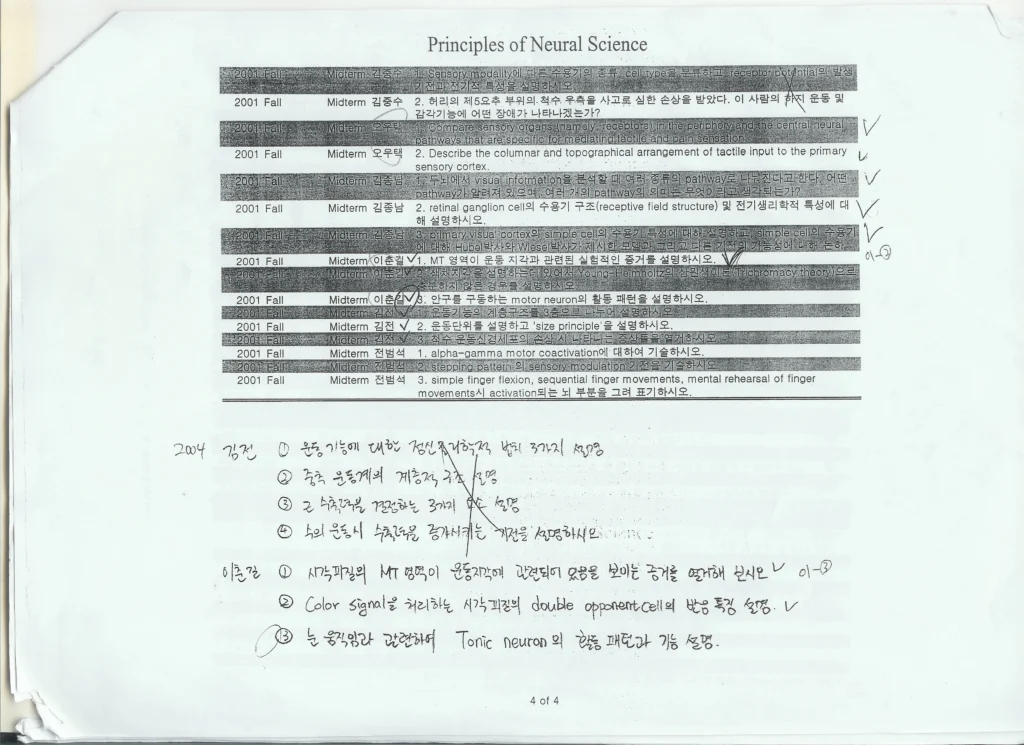 Principles of Neural Science
2001 Fall Midterm 김중수 1. Sensory modality에 따른 수용기의 종류, cell type을 분류하고, receptor potential의 발생
기전과 전기적 특성을 설명하시오.
2001 Fall Midterm 김중수 2. 허리의 제5요추 부위의 척수 우측을 사고로 심한 손상을 받았다. 이 사람의 하지 운동 및
감각기능에 어떤 장애가 나타나겠는가?
2001 Fall Midterm 오우택 1. Compare sensory organs (namely, receptors) in the periphery and the central neural
pathways that are specific for mediating tactile and pain sensation.
2001 Fall Midterm 오우택 2. Describe the columnar and topographical arrangement of tactile input to the primary
sensory cortex.
2001 Fall Midterm 김종남 1. 두뇌에서 visual information을 분석할 때 여러 종류의 pathway로 나누어진다고 한다. 어떤
pathway가 알려져 있으며, 여러 개의 pathway의 의미는 무엇이라고 생각되는가?
2001 Fall Midterm 김종남 2. retinal ganglion cell의 수용기 구조(receptive field structure) 및 전기생리학적 특성에 대
해 설명하시오.
2001 Fall Midterm 김종남 3. primary visual cortex의 simple cell의 수용기 특성에 대해 설명하고, simple cell의 수용기
에 대해 Hubel박사와 Wiesel박사가 제시한 모델과 그리고 다른 기전의 가능성에 대해 논하
2001 Fall Midterm 이춘길 1. MT 영역이 운동 지각과 관련된 실험적인 증거를 설명하시오.
이-③
2001 Fall Midterm 이춘길 2. 색채지각을 설명하는데 있어서 Young-Helmholtz의 삼원색이론(Trichromacy theory)으로
충분하지 않은 경우를 설명하시오.
2001 Fall Midterm 이춘길 3. 안구를 구동하는 motor neuron의 활동 패턴을 설명하시오.
2001 Fall Midterm 김전 1. 운동기능의 계층구조를 3층으로 나누어 설명하시오.
2001 Fall Midterm 김전 2. 운동단위를 설명하고 'size principle'을 설명하시오.
2001 Fall Midterm 김전 3. 척수 운동신경세포의 손상 시 나타나는 증상들을 열거하시오.
2001 Fall Midterm 전범석 1. alpha-gamma motor coactivation에 대하여 기술하시오.
2001 Fall Midterm 전범석 2. stepping pattern의 sensory modulation 기전을 기술하시오.
2001 Fall Midterm 전범석 3. simple finger flexion, sequential finger movements, mental rehearsal of finger
movements시 activation되는 뇌 부분을 그려 표기하시오.
2004 김전 ① 운동기능에 대한 정신물리학적 법칙 3가지 설명
② 중추 운동계의 계층적 구조 설명
③ 근 수축력을 결정하는 3가지 요소 설명
④ 수의 운동시 수축력을 증가시키는 기전을 설명하시오
이춘길 ① 시각피질의 MT 영역이 운동지각에 관련되어 있음을 보이는 증거를 열거해 보시오 이-③
② Color signal을 처리하는 시각피질의 double opponent cell의 반응 특징 설명.
③ 눈 움직임과 관련하여 Tonic neuron의 활동 패턴과 기능 설명.
4 of 4